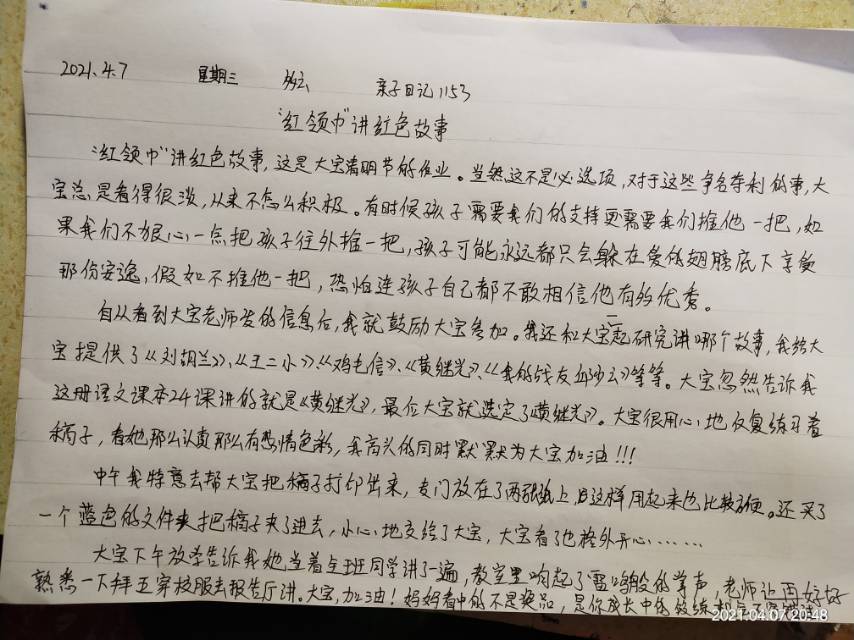 2021.4.7 星期三 多云 亲子日记1153
“红领巾”讲红色故事
“红领巾”讲红色故事,这是大宝清明节的作业。当然这不是必选项,对于这些争名夺利的事,大
宝总是看得很淡,从来不怎么积极。有时候孩子需要我们的支持更需要我们推他一把,如
果我们不狠心一点把孩子往外推一把,孩子可能永远都只会躲在爱的翅膀底下享受
那份安逸,假如不推他一把,恐怕连孩子自己都不敢相信他有多优秀。
自从看到大宝老师发的信息后,我就鼓励大宝参加。我还和大宝一起研究讲哪个故事,我给大
宝提供了《刘胡兰》、《王二小》、《鸡毛信》、《黄继光》、《我的战友邱少云》等等。大宝忽然告诉我
这册语文课本24课讲的就是《黄继光》,最后大宝就选定了《黄继光》。大宝很用心地反复练习着
稿子,看她那么认真那么有感情色彩,我高兴的同时默默为大宝加油!!!
中午我特意去帮大宝把稿子打印出来,专门放在了两张纸上,这样用起来也比较方便。还买了
一个蓝色的文件夹把稿子夹了进去,小心地交给了大宝,大宝看了也格外开心……
大宝下午放学告诉我她当着全班同学讲了一遍,教室里响起了雷鸣般的掌声,老师让再好好
熟悉一下拜五穿校服去报告厅讲。大宝,加油!妈妈看中的不是奖品,是你成长中的
2021.04.07 20:48